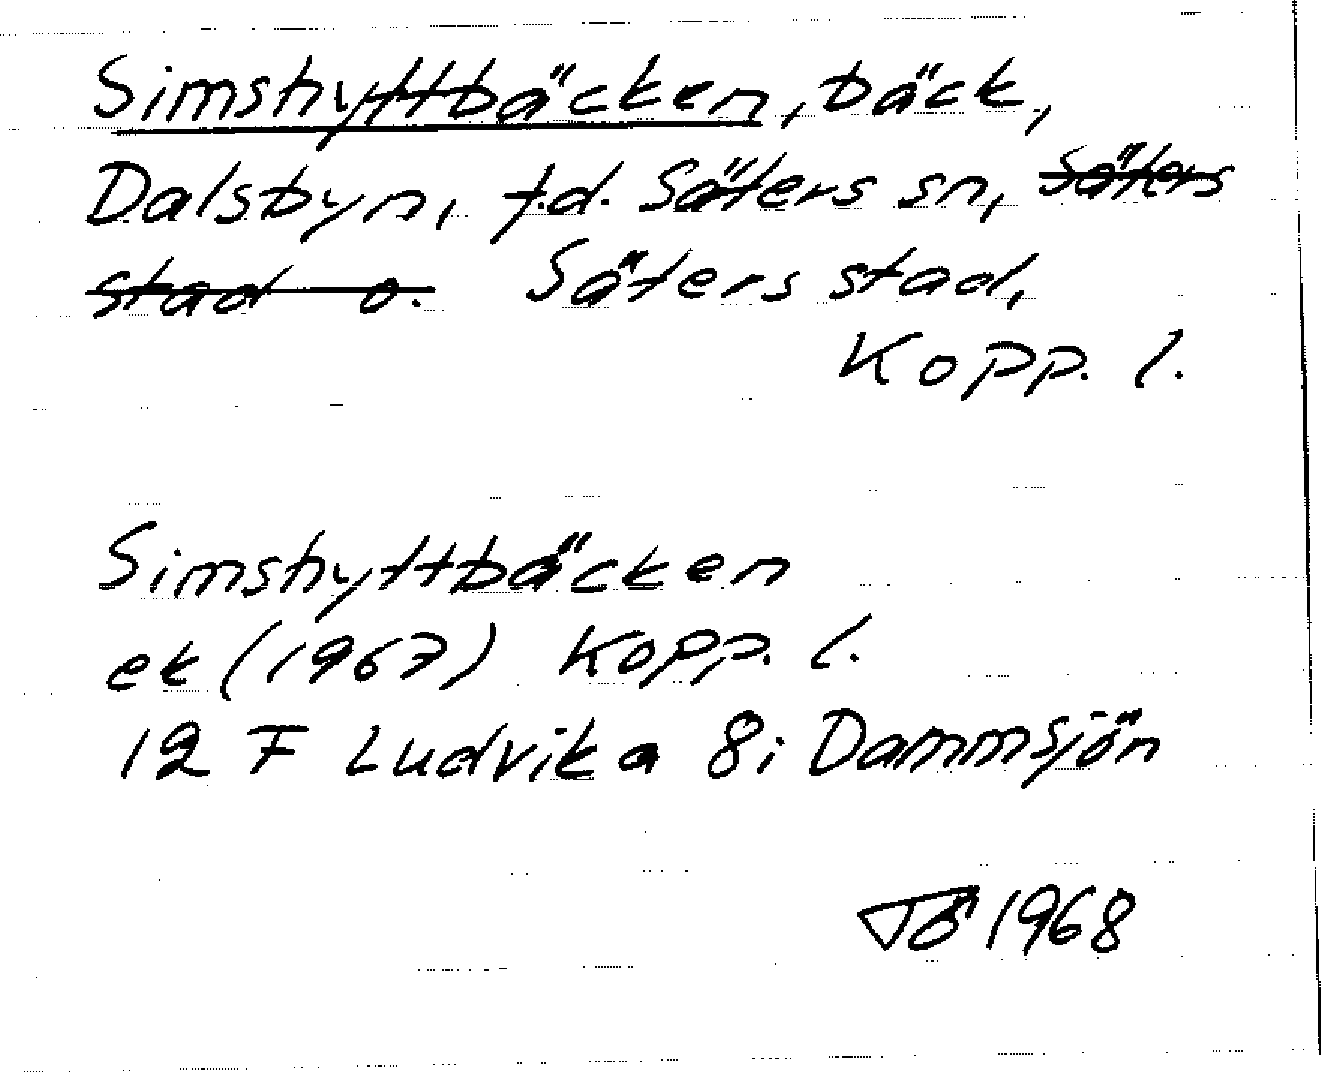 Simshyttbäcken, bäck,
Dalsbyn, f.d. Säters sn, Säters
stad o. Säters stad,
Kopp. l.
Simshyttbäcken
ek (1967) Kopp. l.
12 F Ludvika 8i Dammsjön
TÖ 1968